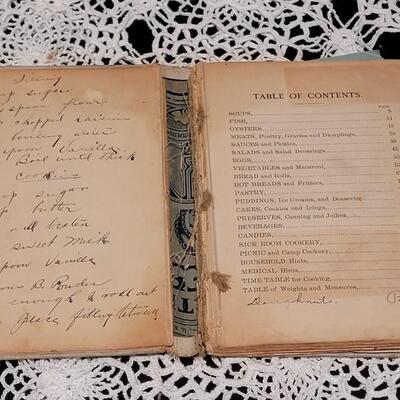 Filling
up sugar
spoon flour
chopped raisins
boiling water
spoon Vanilla
Boil until thick
cookies
up sugar
up butter
well beaten
sweet Milk
spoon Vanilla
ons B. Powder
enough to roll out
Place filling between
TABLE OF CONTENTS.
PAGE
SOUPS, 5
FISH, 11
OYSTERS, 19
MEATS, Poultry, Gravies and Dumplings,
SAUCES and Pickles,
SALADS and Salad Dressings,
EGGS,
VEGETABLES and Macaroni,
BREAD and Rolls,
HOT BREADS and Fritters,
PASTRY,
PUDDINGS, Ice Creams, and Desserts,
CAKES, Cookies and Icings,
PRESERVES, Canning and Jellies,
BEVERAGES,
CANDIES,
SICK ROOM COOKERY,
PICNIC and Camp Cookery,
HOUSEHOLD Hints,
MEDICAL Hints,
TIME TABLE for Cooking,
TABLE of Weights and Measures,
Doughnuts